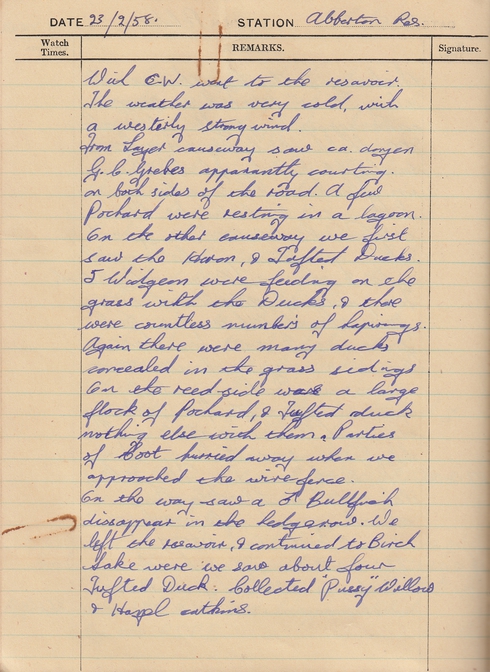 DATE 23/2/58. STATION Abberton Res.
Watch Times. REMARKS. Signature.
With C.W. went to the resavoir.
The weather was very cold, with
a westerly strong wind.
From Layer causeway saw ca. dozen
G.C. Grebes apparantly courting.
on both sides of the road. A few
Pochard were resting in a lagoon.
On the other causeway we first
saw the Heron, & Tufted Ducks.
5 Widgeon were feeding on the
grass with the Ducks, & there
were countless numbers of lapwings.
Again there were many ducks
concealed in the grass sidings
On the reed-side was a large
flock of Pochard, & Tufted duck
nothing else with them. Parties
of Coot hurried away when we
approached the wire fence.
On the way saw a Bullfinch
dissappear in the hedgerow. We
left the resavoir, & continued to Birch
Lake were we saw about four
Tufted Duck. Collected "Pussy" Willow
& Hazel catkins.